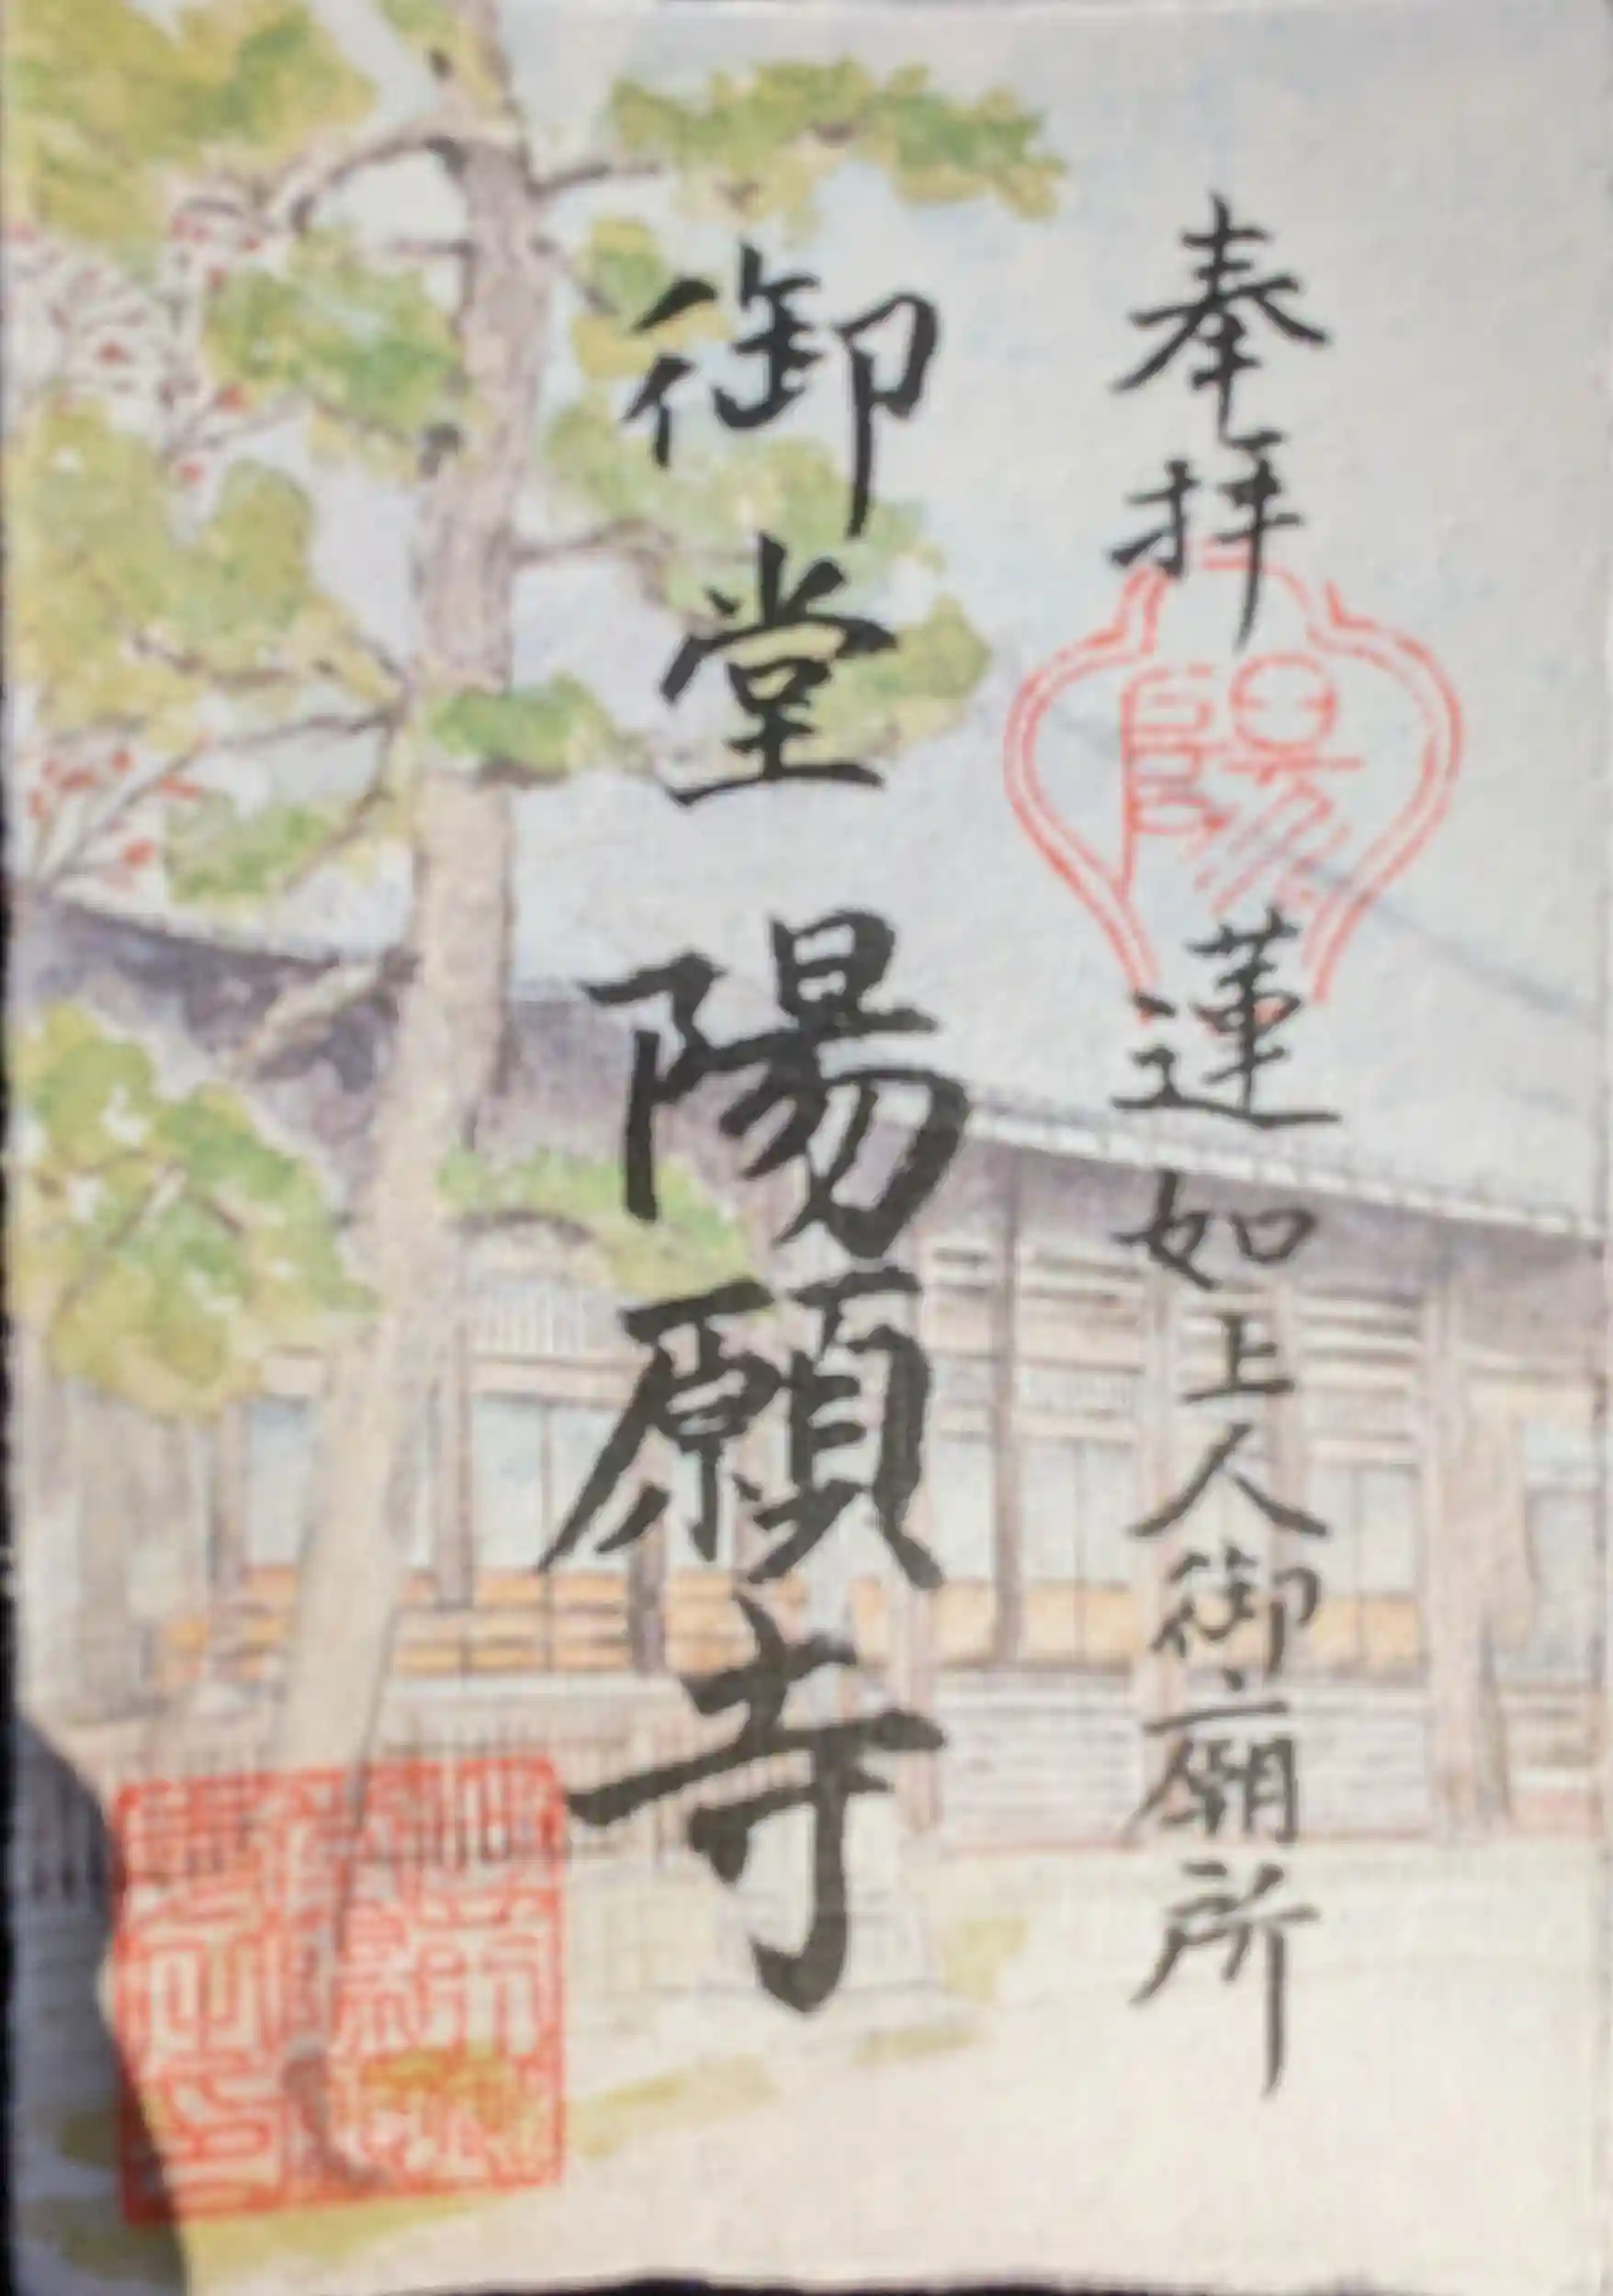 奉拝
陽
蓮如上人御廟所
御堂 陽願寺